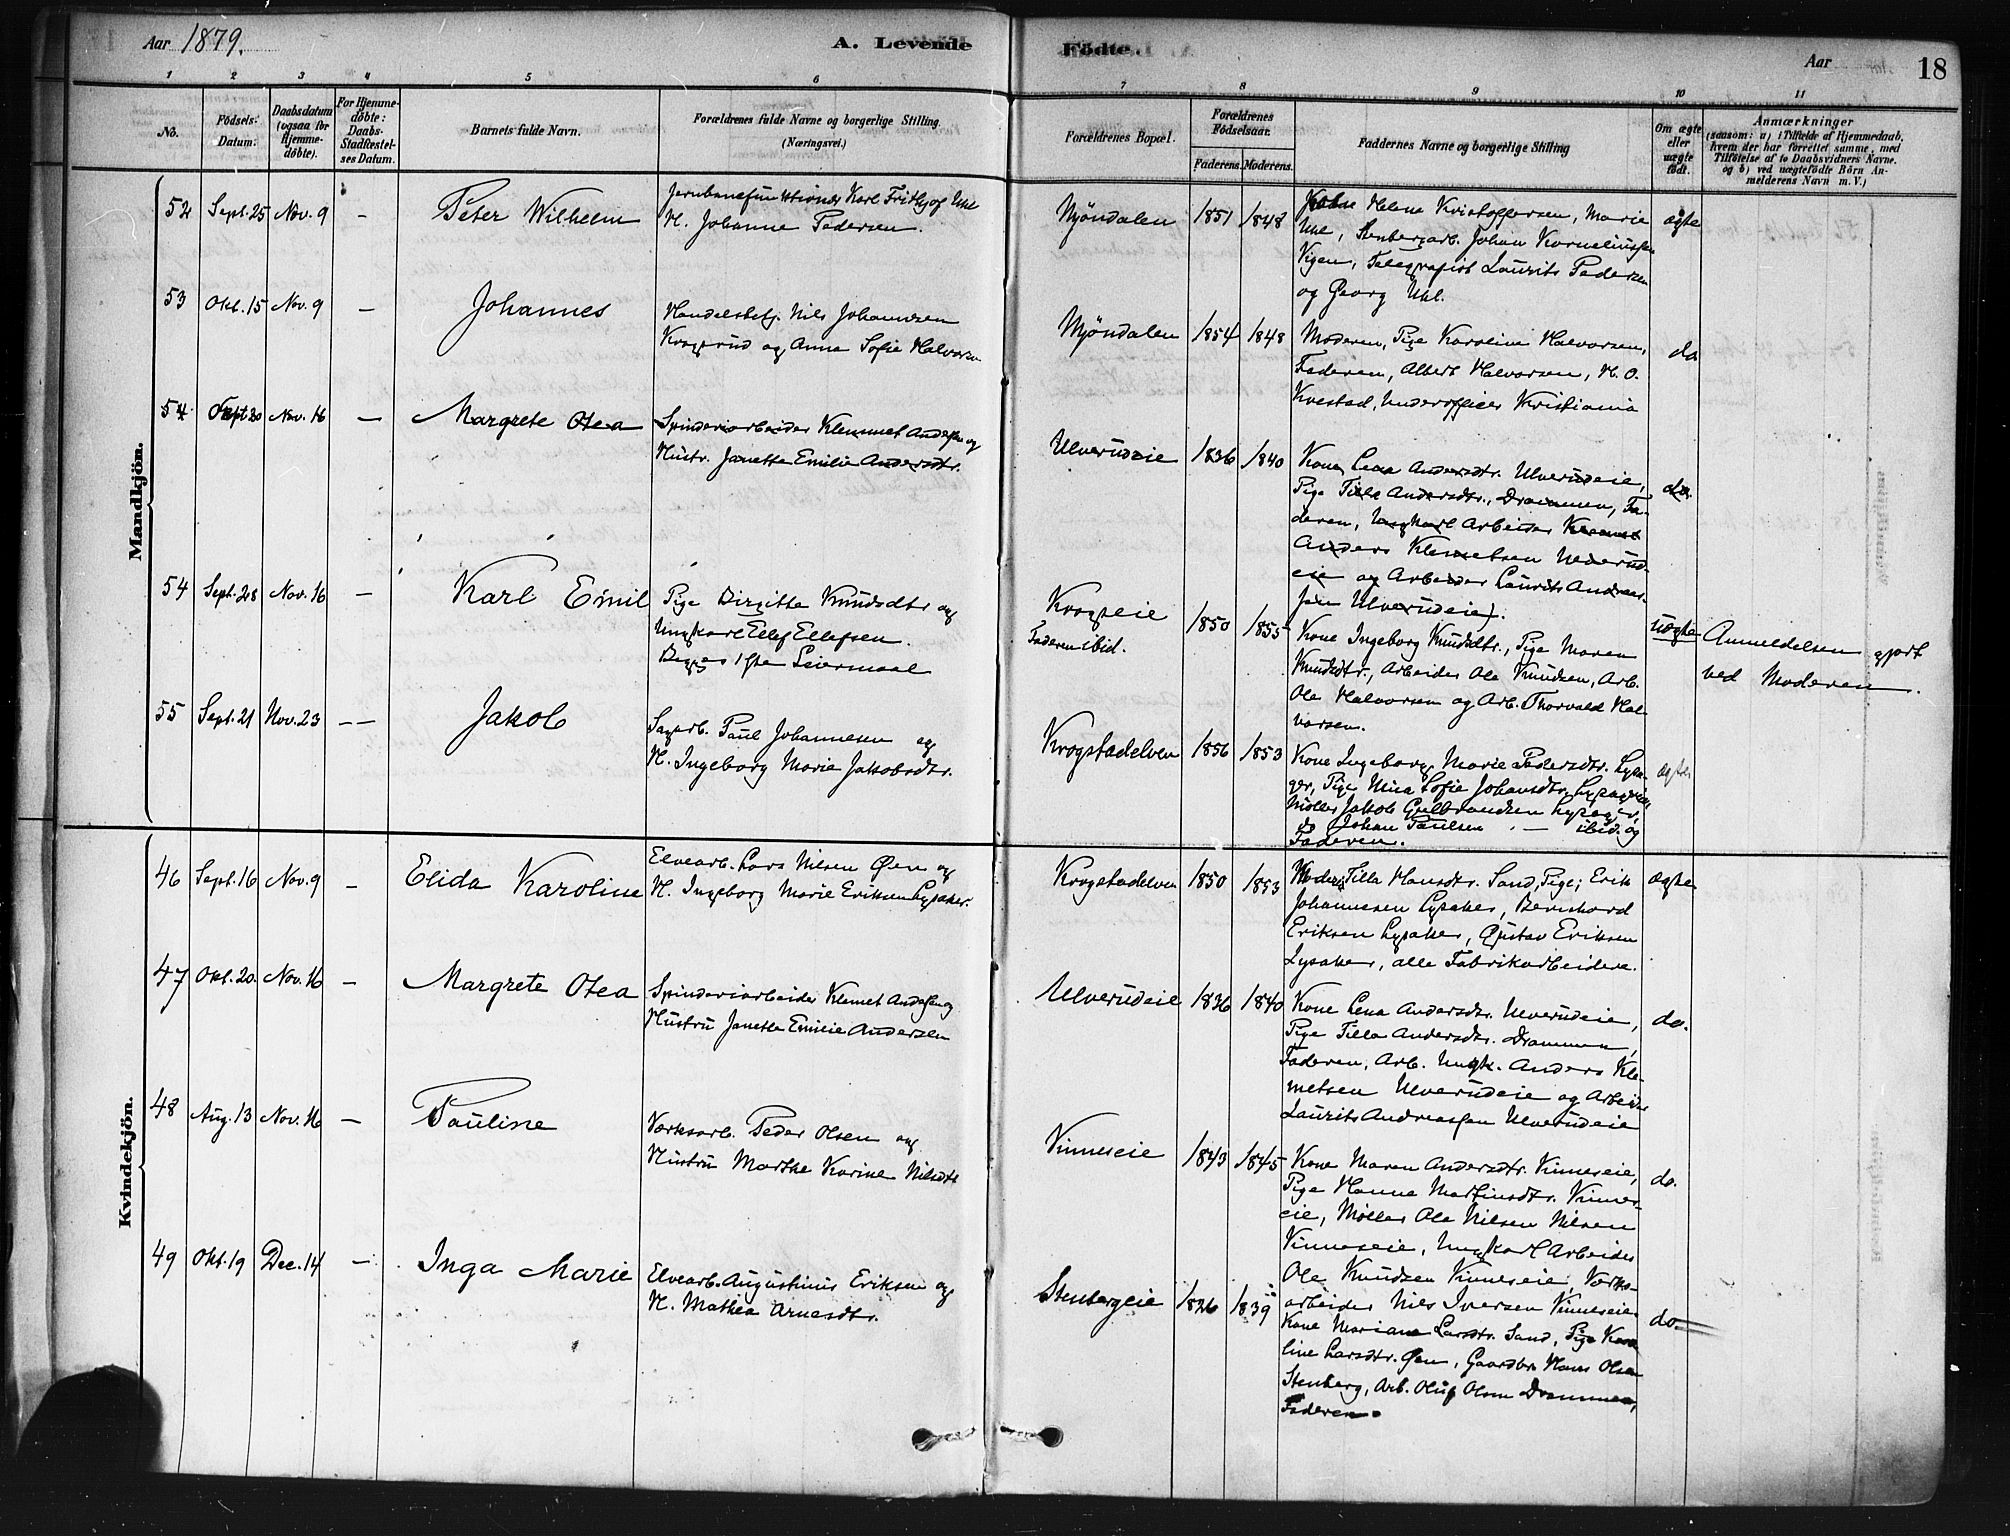 Aar 1879.
A. Levende
Födte.
Aar
18
1 2 3 4 5 6 7 8 9 10 11
No.
Födsels-Datum.
Daabsdatum (ogsaa for Hjemme-döbte).
For Hjemme-döbte: Daabs-Stadfæstel-ses Datum.
Barnets fulde Navn.
Forældrenes fulde Navne og borgerlige Stilling.
(Næringsvei.)
Forældrenes Bopæl.
Forældrenes Födselsaar.
Faderens. Moderens.
Faddernes Navne og borgerlige Stilling
Om ægte eller uægte födt.
Anmærkninger
(saasom: a) i Tilfælde af Hjemmedaab,
hvem der har forrettet samme, med
Tilföielse af to Daabsvidners Navne.
og b) ved uægtefödte Börn An-
melderens Navn m. V.)
Mandkjön.
52 Sept. 25 Nov. 9 — Peter Wilhelm
Karl Fridtjof Uhl
H. Johanne Pedersen.
Mjöndalen 1851 1848
Helene Kristoffersen, Marie
Uhl, Stenbergarb. Johan Korneliussen
Vigen, Telegrafist Laurits Pedersen
og Georg Uhl.
ægte
53 Okt. 15 Nov. 9 — Johannes
Handelsbetj. Nils Johannesen
Krogsrud og Anna Sofie Halvorsen
Mjöndalen 1854 1848
Moderen, Pige Karoline Halvorsen,
Faderen, Albert Halvorsen, H. O.
Kvestad, Underofficer Kristiania
do
54 Nov. 16 — Margrete Otea
Spinderiarbeider Klemmet Andersen og
Hustr. Janette Emilie Andersdtr.
Ulverudeie 1836 1840
Kone Lena Andersdtr. Ulverudeie,
Pige Tilla Andersdtr., Drammen, Fa-
deren, Ungkarl Arbeider
Anders Klemetsen Ulverud-
eie og Arbeider Laurits Andreas-
sen Ulverudeie.
do.
54 Sept. 28 Nov. 16 — Karl Emil
Pige Birgitte Knudsdtr og
Ungkarl Ellef Ellefsen.
Begges 1ste Leiermaal
Krogseie
Faderen ibid.
1850 1855
Kone Ingeborg Knudsdtr., Pige Maren
Knudsdtr., Arbeider Ole Knudsen, Arb.
Ole Halvorsen og Arb. Thorvald Hal-
vorsen.
uægte
Anmeldelsen gjort
ved Moderen.
55 Sept. 21 Nov. 23 — Jakob
Sagarb. Paul Johannesen og
H. Ingeborg Marie Jakobsdtr.
Krogstadelven 1856 1853
Kone Ingeborg Marie Pedersdtr. Lysa-
ger, Pige Mina Sofie Johansdtr. Lysager,
Möller Jakob Gulbrandsen Lysager,
do Johan Paulsen — ibid. og
Faderen.
ægte
Kvindekjön.
46 Sept. 16 Nov. 9 — Elida Karoline
Elvearb. Lars Nilsen Øen og
H. Ingeborg Marie Eriksen Lysaker.
Krogstadelven 1850 1853
Moder, Tilla Hansdtr. Sand, Pige; Erik
Johannesen Lysaker, Bernhard
Eriksen Lysaker, Gustav Eriksen
Lysaker, alle Fabrikarbeidere.
ægte
47 Okt. 20. Nov. 16 — Margrete Otea
Spinderiarbeider Klemet Andersen og
Hustru Janette Emilie Andersen
Ulverudeie 1836 1840
Kone Lena Andersdtr. Ulverudeie,
Pige Tilla Andersdtr. Drammen,
Faderen, Arb. Ungk. Anders Kle-
metsen Ulverudeie og Arbeider
Laurits Andreassen Ulverudeie
do.
48 Aug. 13 Nov. 16 — Pauline
Værksarb. Peder Olsen og
Hustru Marthe Karine Nilsdtr
Vinneseie 1843 1845
Kone Maren Andersdtr. Vinneseie,
Pige Hanna Martinsdtr. Vinnes-
eie, Möller Ole Nilsen Nilsen
Vinneseie, Ungkarl Arbeider
Ole Knudsen Vinneseie, Værks-
arbeider Nils Iversen Vinneseie
do.
49 Okt. 19 Dec. 14 — Inga Marie
Elvearb. Augustinus Eriksen og
H. Mathea Arnesdtr.
Stenbergeie 1826 1839
Kone Mariane Larsdtr. Sand, Pige Karo-
line Larsdtr. Øen, Gaardbr. Hans Olsen
Stenberg, Arb. Oluf Olsen Drammen,
Faderen.
do